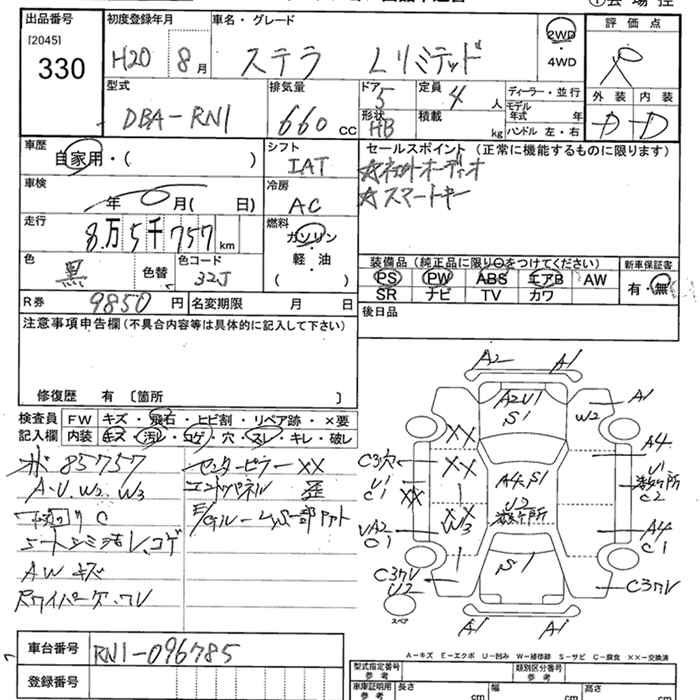 出品番号
[2045]
330
初度登録年月
H20 8月
車名・グレード
ステラ Lリミテッド
2WD
・
4WD
評価点
外装 内装
D D
型式
DBA-RN1
排気量
660 cc
ドア 5
形状 HB
定員 4 人
積載 kg
ディーラー・並行
モデル年式 年
ハンドル 左・右
車歴
自家用・( )
シフト
IAT
セールスポイント (正常に機能するものに限ります)
☆ネットオーディオ
☆スマートキー
車検
年 月( 日)
冷房
AC
走行
8万5千757km
燃料
ガソリン
・
軽・油
( )
色
黒
色替
色コード
32J
装備品(純正品に限り○をつけてください)
PS PW ABS エアB AW
SR ナビ TV カワ
新車保証書
有・無
R券 9850円
名変期限 月 日
後日品
注意事項申告欄(不具合内容等は具体的に記入して下さい)
修復歴 有 〔箇所 〕
検査員
記入欄
FW キズ・飛石・ヒビ割・リペア跡・×要
内装 キズ・汚レ・コゲ・穴・スレ・キレ・破レ
85757
A・U、W2、W3
シートシミ汚レ、コゲ
AWキズ
Rワイパー欠
センターピラーXX
エンドパネル 歪
A2 A1
A2U1
S1
A1
W2
XX
XX
C3穴
U1
C1
XX
A4.S1
U2
A4
U1
C2
UA2
C1
W3
A4
C1
S1
U2
スペア
A1 A1
A-キズ E-エクボ U-凹み W-補修跡 S-サビ C-腐食 ××-交換済
車台番号 RN1-096785
登録番号
型式指定番号
参考
類別区分番号
参考
車庫証明用
参考
長さ cm
幅 cm
高さ cm